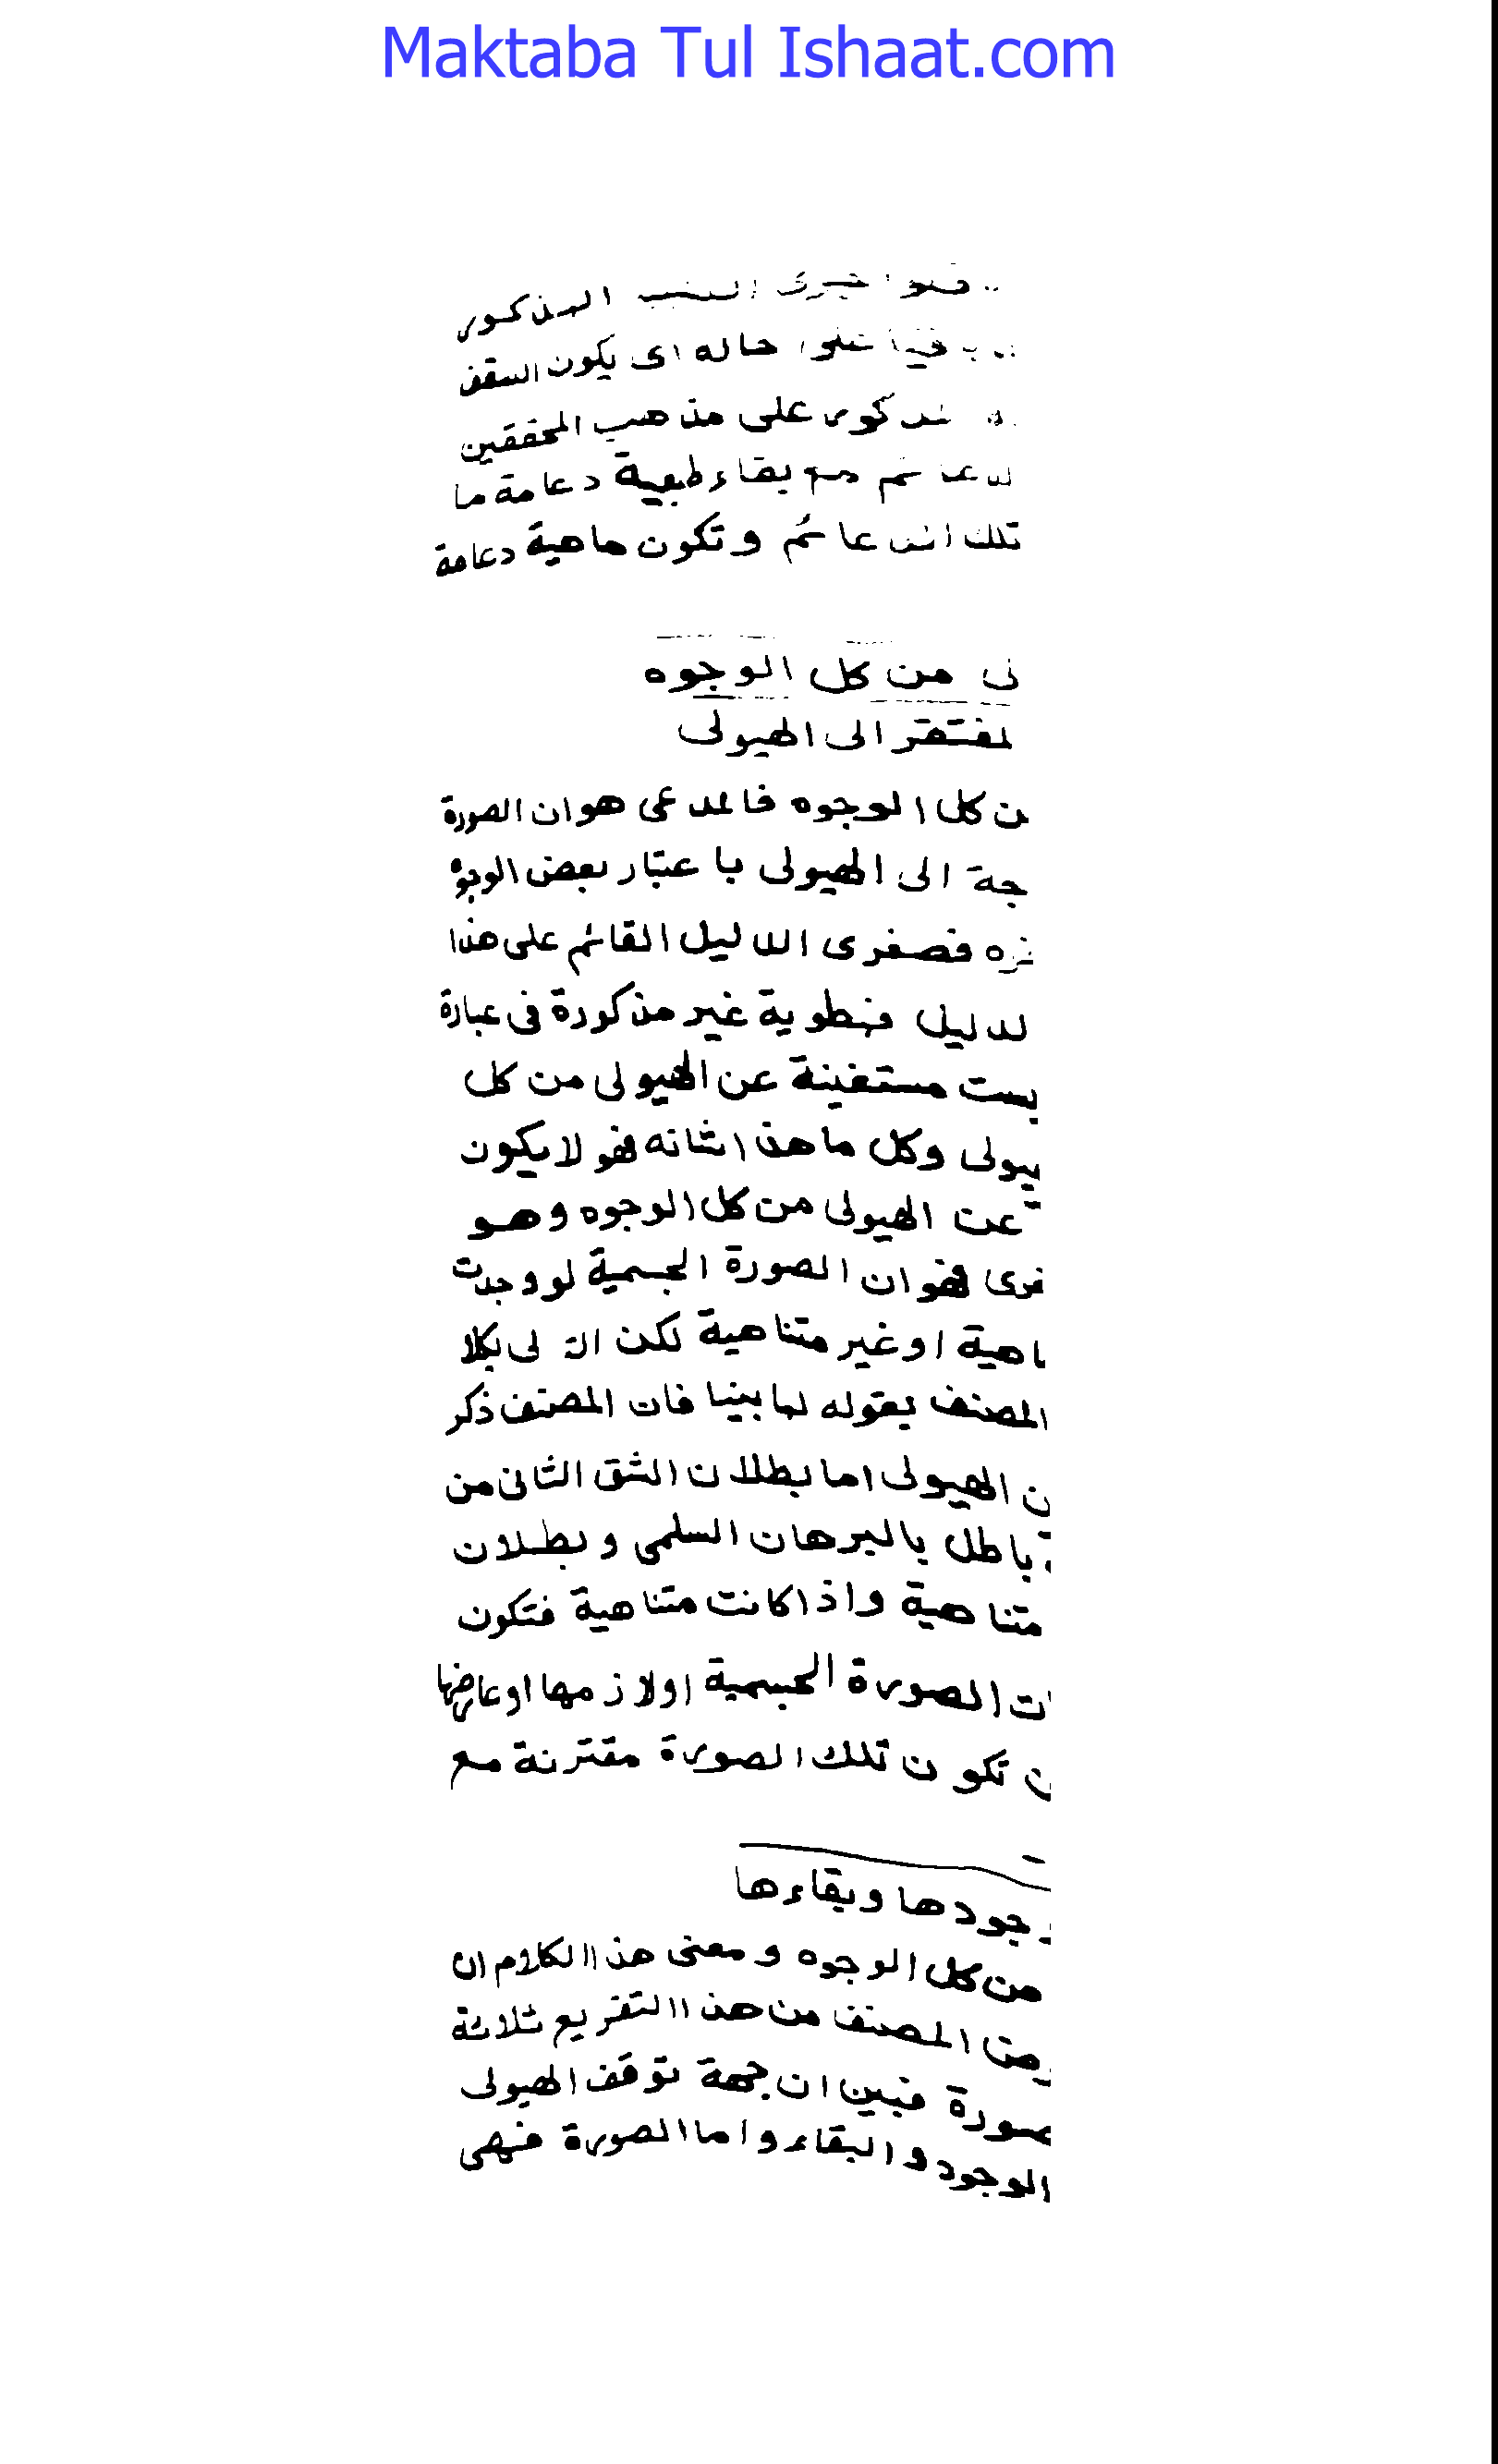 Maktaba Tul Ishaat.com
المذكور
حاله اى يكون السقف
على مذهب المحققين
مع بقاء طبعية دعامة ما
تلك الدعائم وتكون ماهية دعامة
من كل الوجوه
لمفتقر الى الهيولى
ن كل الوجوه فالمدعى هو ان الصورة
جة الى الهيولى باعتبار بعض الوجوه
فصغرى الدليل القائم على هذا
لدليل فمطوية غير مذكورة فى عبارة
يست مستغنية عن الهيولى من كل
يولى وكل ما هذا شانه فهو لا يكون
عن الهيولى من كل الوجوه وهو
غرى فهو ان الصورة الجسمية لو وجدت
اهية او غير متناهية لكن التالى بكلا
المصنف بقوله لما بينا فان المصنف ذكر
ن الهيولى اما بطلان الشق الثانى من
باطل بالبرهان السلمى وبطلان
متناهية واذا كانت متناهية فتكون
ات الصورة الجسمية او لازمها او عارضها
ن تكون تلك الصورة مقترنة مع
وجودها وبقاءها
من كل الوجوه ومعنى هذا الكلام ان
المصنف من هذا التفريع ثلاثة
صورة فبين ان جهة توقف الهيولى
الوجود والبقاء واما الصورة فهى